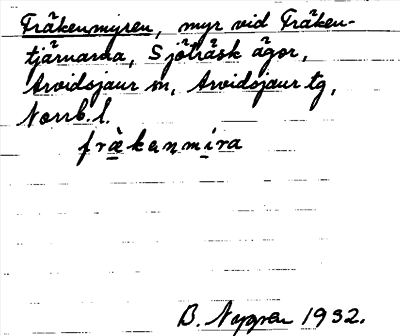 Fräkenmyren, myr vid Fräken-
tjärnarna, Sjöträsk ägor,
Arvidsjaur sn, Arvidsjaur tg,
Norrb. l.
fräkenmira
B. Nygren 1932.